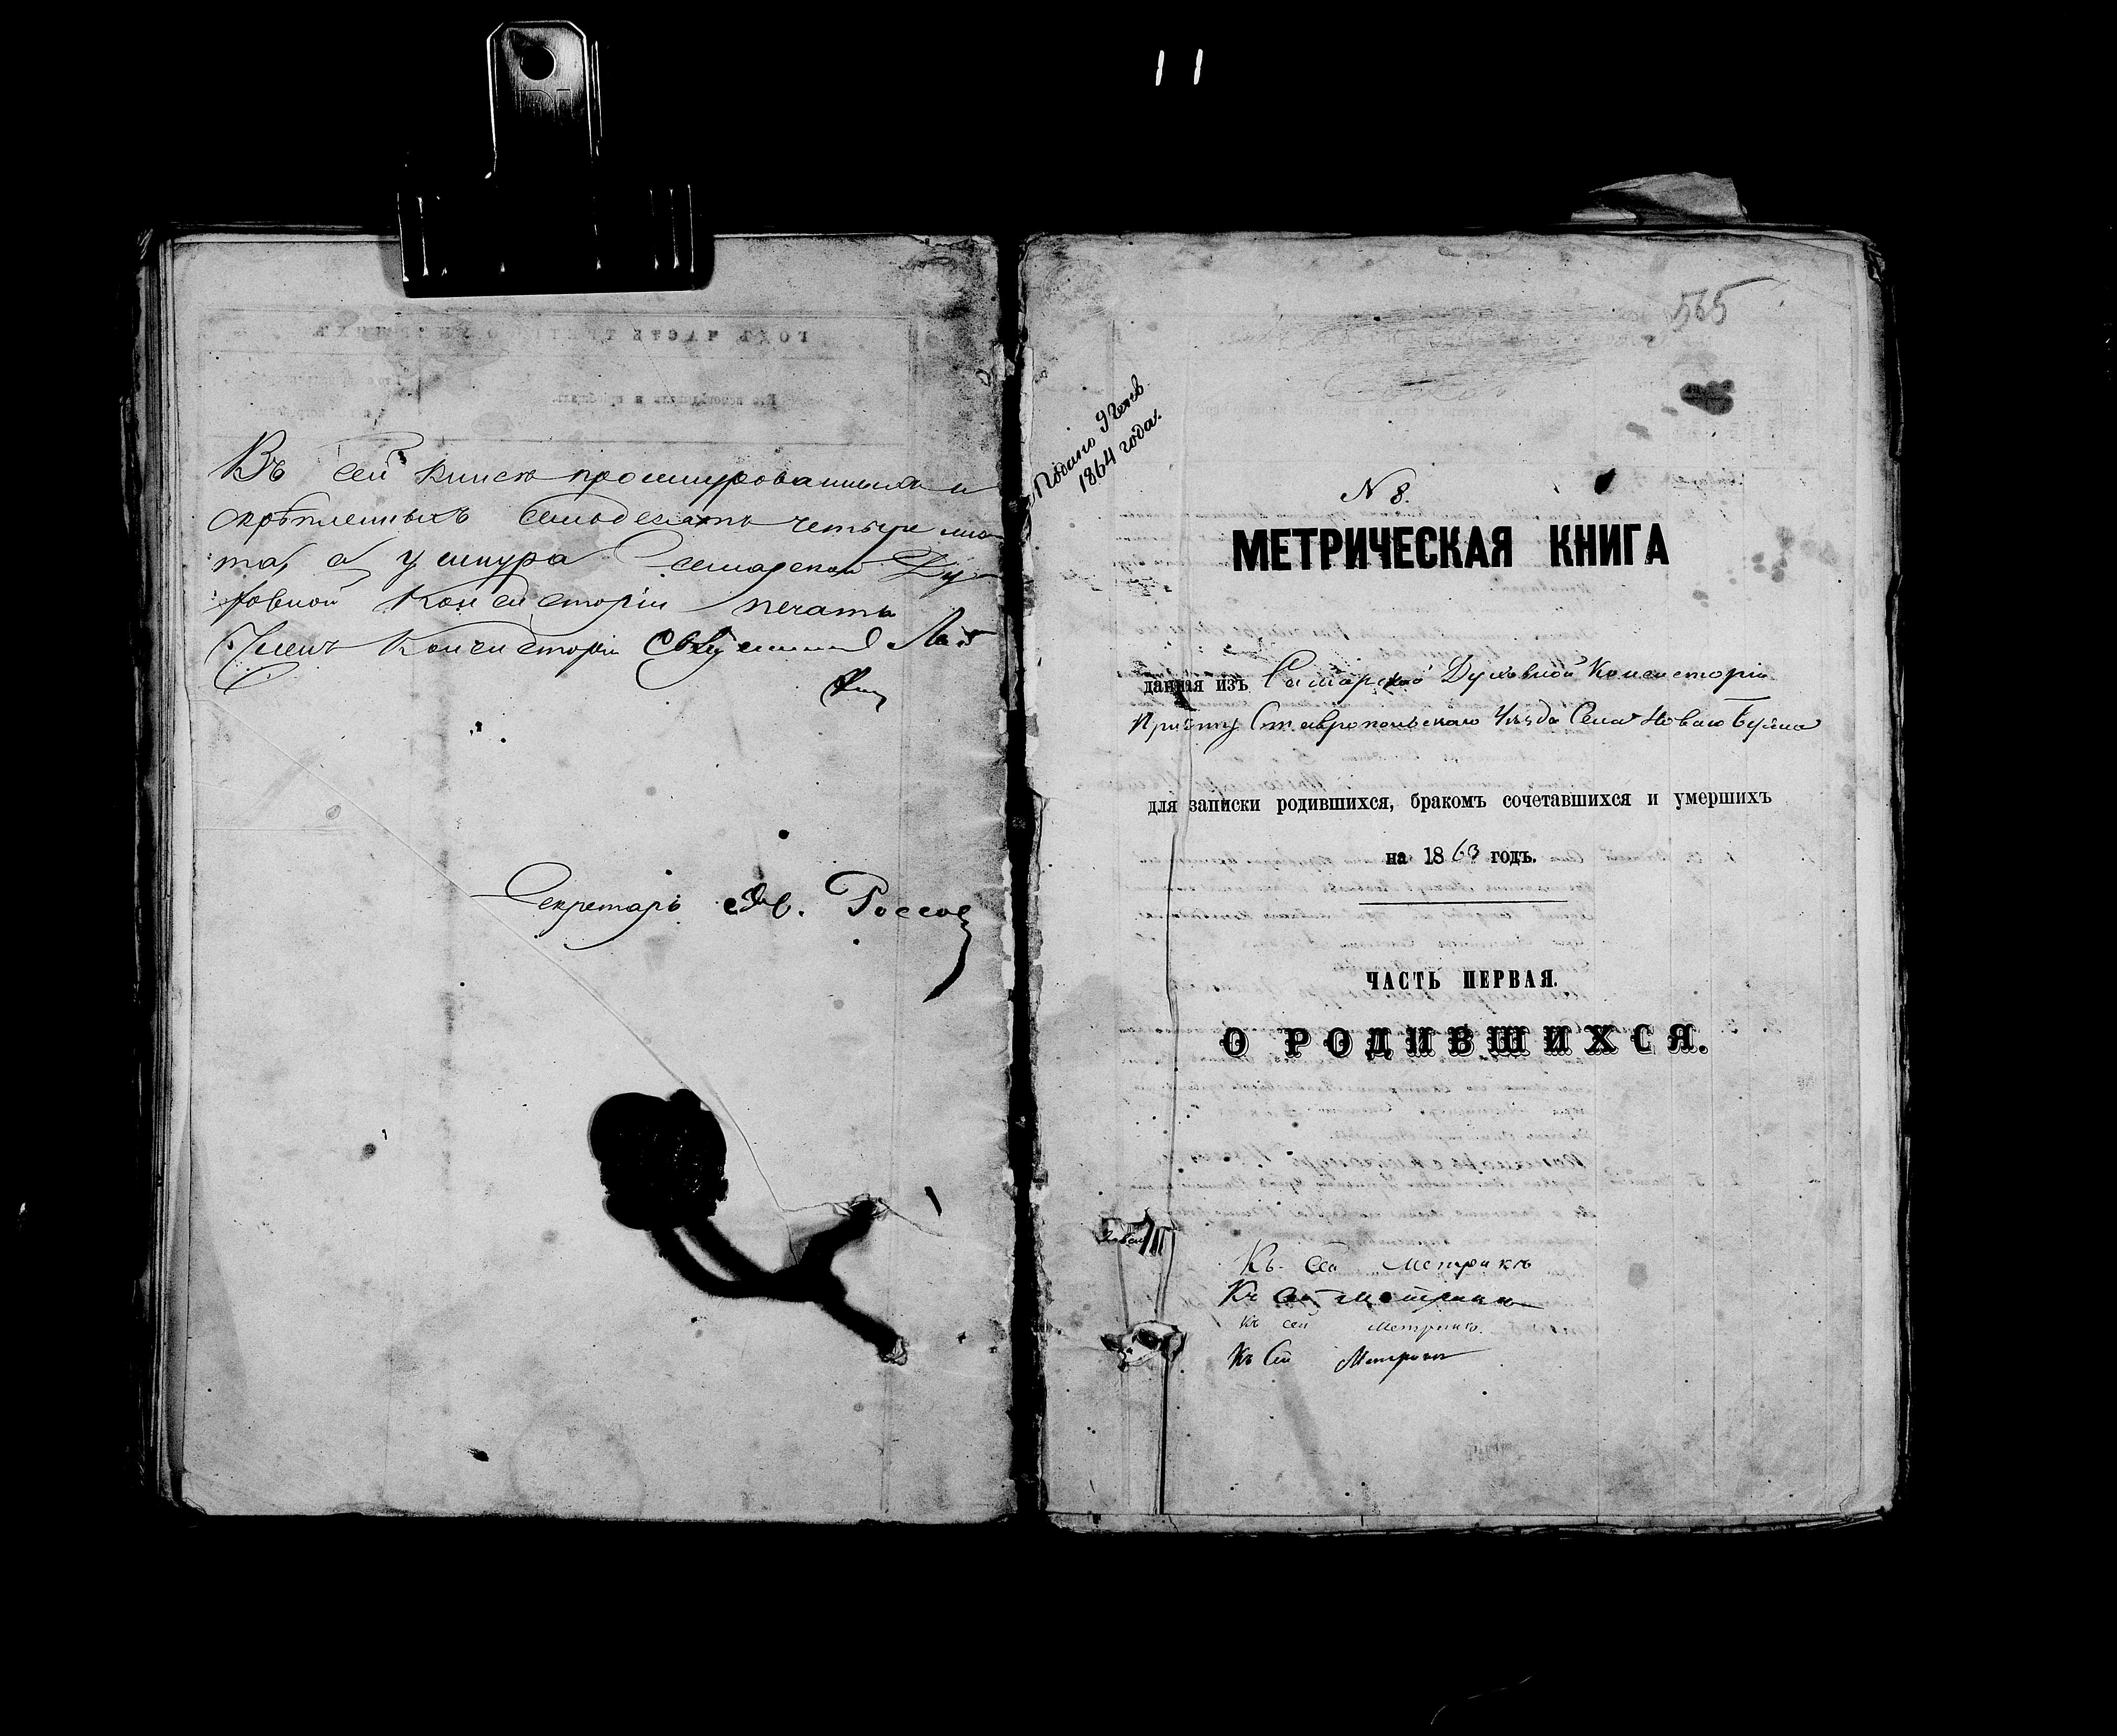 Въ сей книгѣ прошнурованныхъ и
скрѣпленныхъ семьдесятъ четыре лис
та, а у шнура Самарской Ду
ховной Консисторіи печать
Членъ Консисторіи Священникъ
Секретарь Россов
11
565
Подано 9 Генв
1864 года.
N 8.
МЕТРИЧЕСКАЯ КНИГА
данная изъ Самарской Духовной Консисторіи
Причту Ставропольскаго Уѣзда Села Новаго Буяна
для записки родившихся, бракомъ сочетавшихся и умершихъ
на 1863 годъ.
ЧАСТЬ ПЕРВАЯ.
О РОДИВШИХСЯ.
Къ сей метрикѣ
Къ сей метрикѣ
Къ сей метрикѣ.
Къ сей Метрикѣ